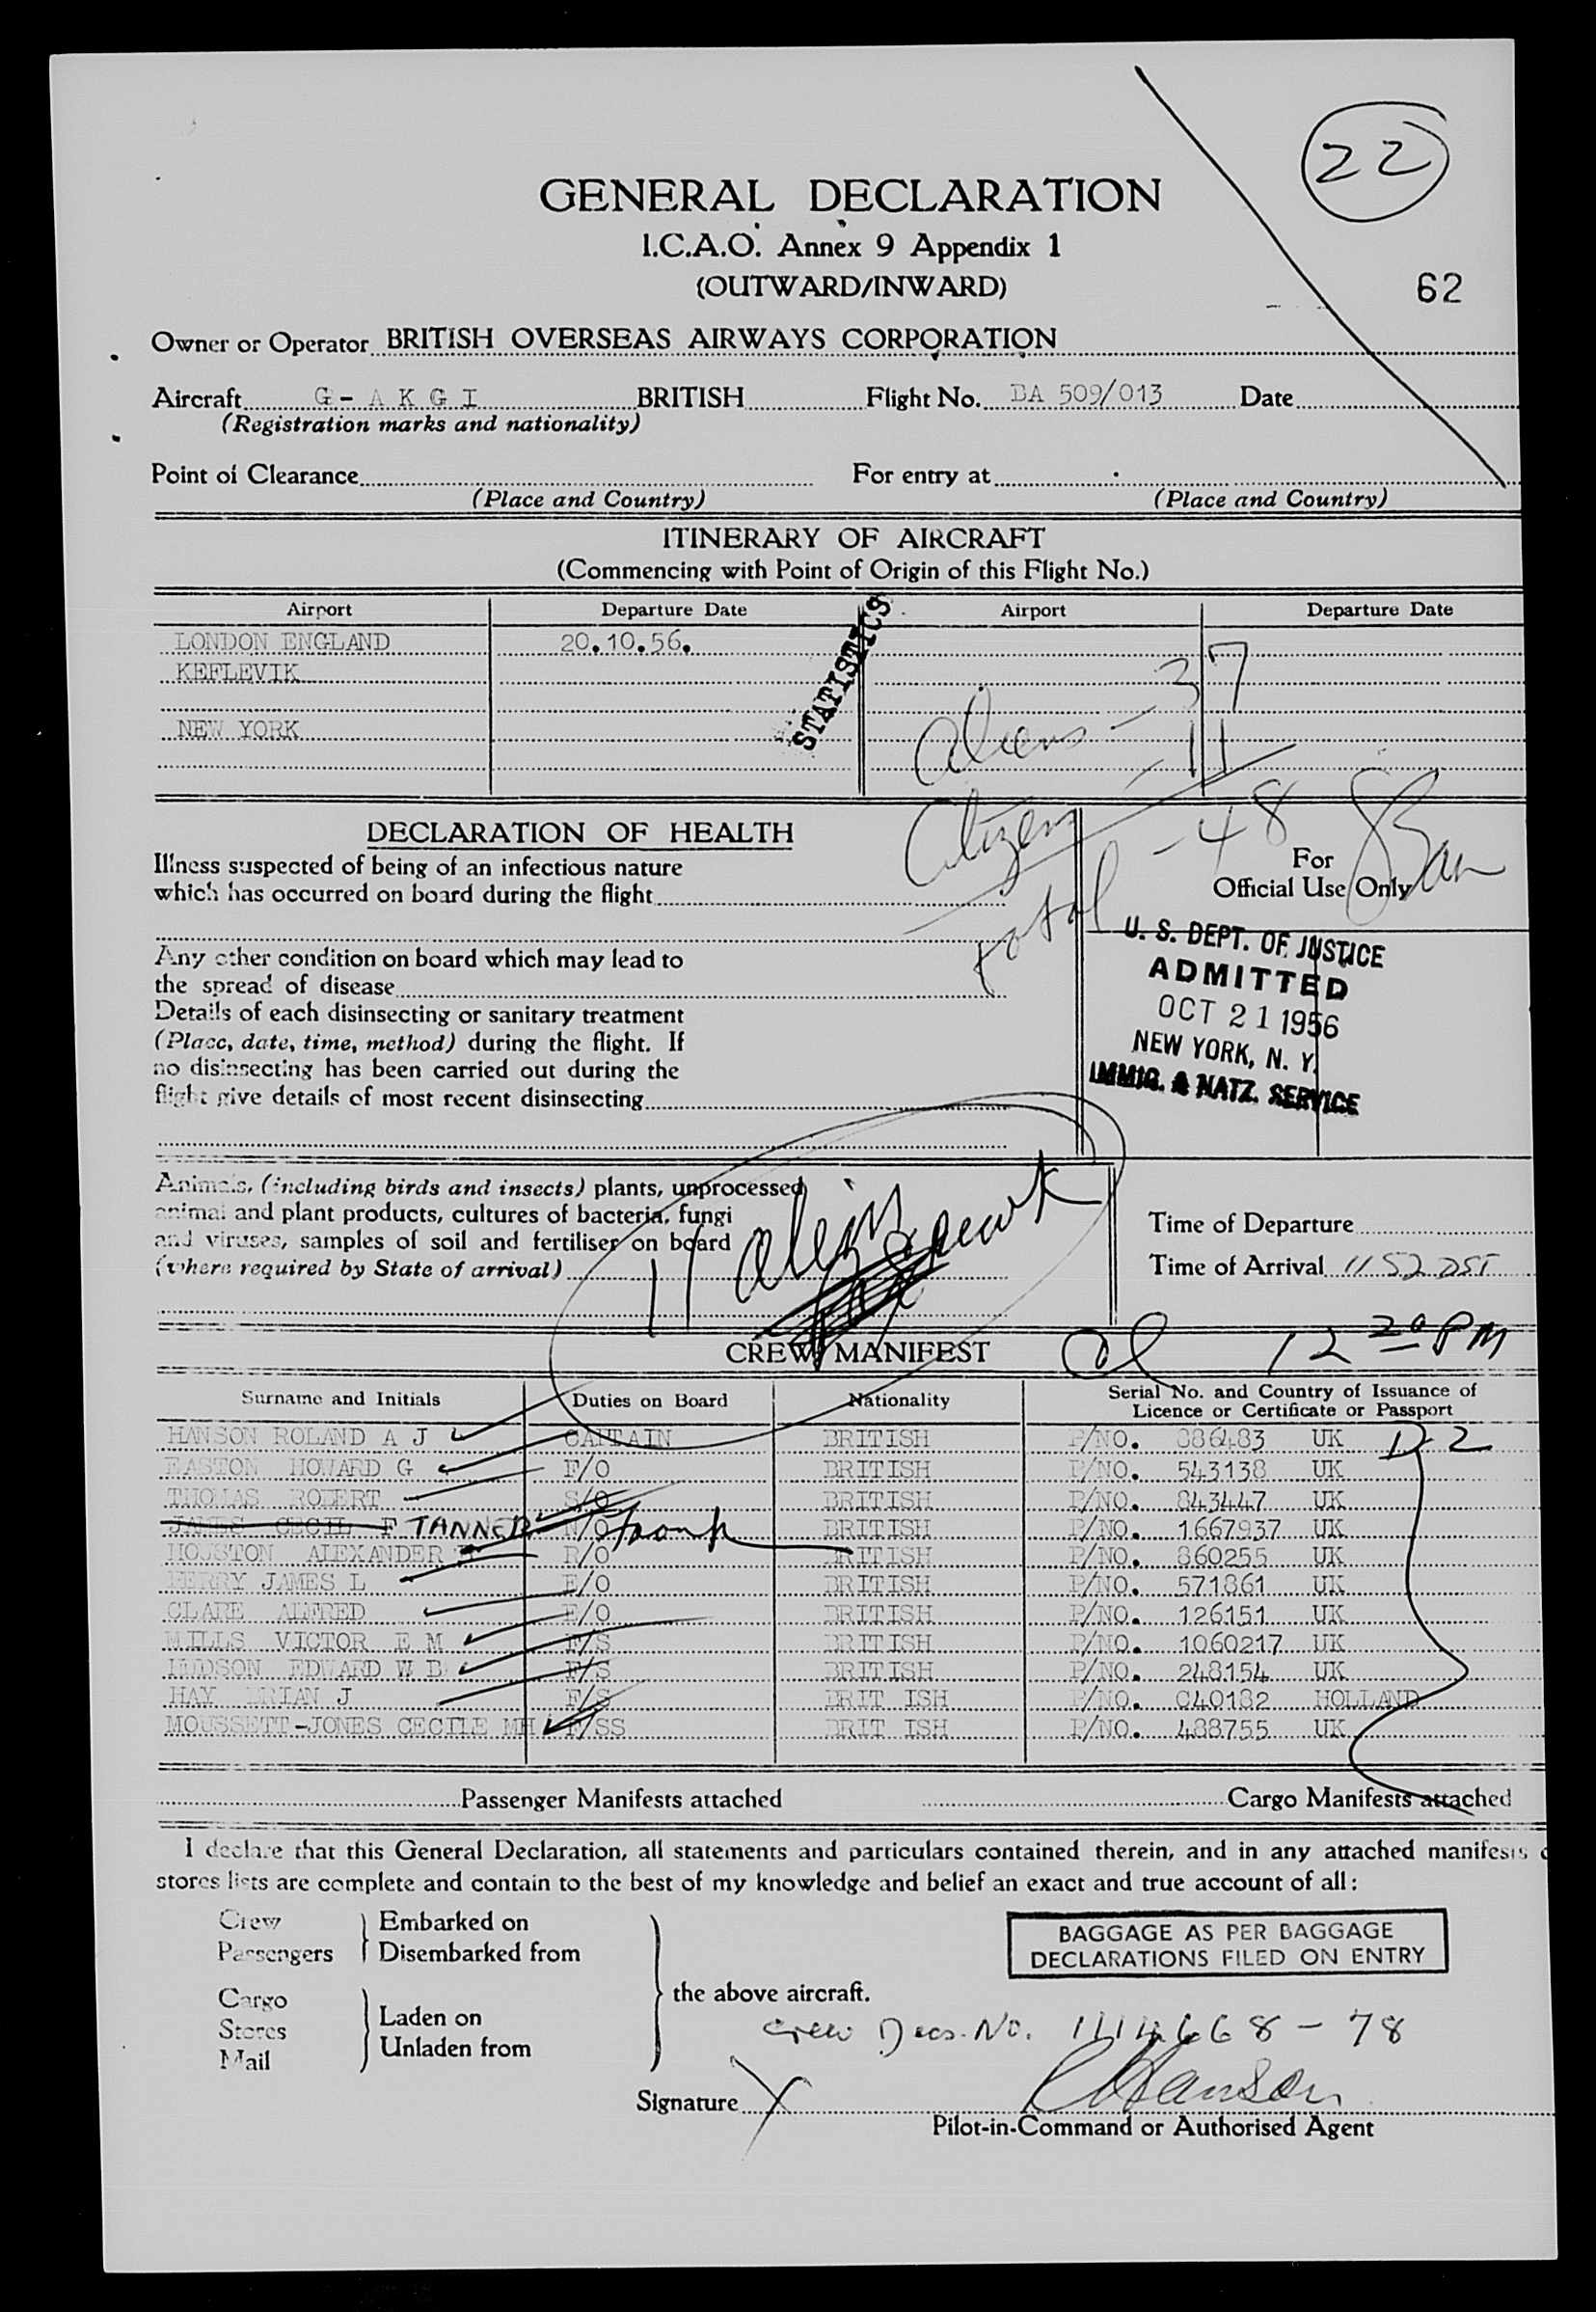 22
GENERAL DECLARATION
I.C.A.O. Annex 9 Appendix 1
(OUTWARD/INWARD)
62
Owner or Operator BRITISH OVERSEAS AIRWAYS CORPORATION
Aircraft G - A K G I BRITISH Flight No. BA 509/013 Date
(Registration marks and nationality)
Point of Clearance For entry at
(Place and Country) (Place and Country)
ITINERARY OF AIRCRAFT
(Commencing with Point of Origin of this Flight No.)
Airport Departure Date Airport Departure Date
LONDON ENGLAND 20.10.56.
KEFLEVIK
NEW YORK
STATISTICS
Aliens - 37
Citizens - 11
Total - 48
DECLARATION OF HEALTH
Illness suspected of being of an infectious nature
which has occurred on board during the flight
For
Official Use Only
Any other condition on board which may lead to
the spread of disease
Details of each disinsecting or sanitary treatment
(Place, date, time, method) during the flight. If
no disinsecting has been carried out during the
flight give details of most recent disinsecting
U. S. DEPT. OF JUSTICE
ADMITTED
OCT 21 1956
NEW YORK, N. Y.
IMMIG. & NATZ. SERVICE
Animals, (including birds and insects) plants, unprocessed
animal and plant products, cultures of bacteria, fungi
and viruses, samples of soil and fertiliser on board
(where required by State of arrival)
11 alien
Time of Departure
Time of Arrival 1152 DST
12 20 PM
CREW MANIFEST
Surname and Initials Duties on Board Nationality Serial No. and Country of Issuance of
Licence or Certificate or Passport
HANSON ROLAND A J CAPTAIN BRITISH P/NO. 386483 UK D-2
EASTON HOWARD G F/O BRITISH P/NO. 543138 UK
THOMAS ROBERT S/O BRITISH P/NO. 843447 UK
JAMES CECIL F TANNER N/O Frank BRITISH P/NO. 1667937 UK
HOUSTON ALEXANDER R/O BRITISH P/NO. 860255 UK
PERRY JAMES L E/O BRITISH P/NO. 571861 UK
CLARE ALFRED E/O BRITISH P/NO. 126151 UK
MILLS VICTOR E M F/S BRITISH P/NO. 1060217 UK
HUDSON EDWARD W B F/S BRITISH P/NO. 248154 UK
HAY BRIAN J F/S BRIT ISH P/NO. C40182 HOLLAND
MOUSSETT-JONES CECILE MH F/SS BRIT ISH P/NO. 488755 UK
Passenger Manifests attached Cargo Manifests attached
I declare that this General Declaration, all statements and particulars contained therein, and in any attached manifests
stores lists are complete and contain to the best of my knowledge and belief an exact and true account of all:
Crew Embarked on
Passengers Disembarked from
BAGGAGE AS PER BAGGAGE
DECLARATIONS FILED ON ENTRY
the above aircraft.
Cargo Laden on
Stores
Mail Unladen from
Crew Decs. No. 1414668 - 78
Signature X Hanson
Pilot-in-Command or Authorised Agent